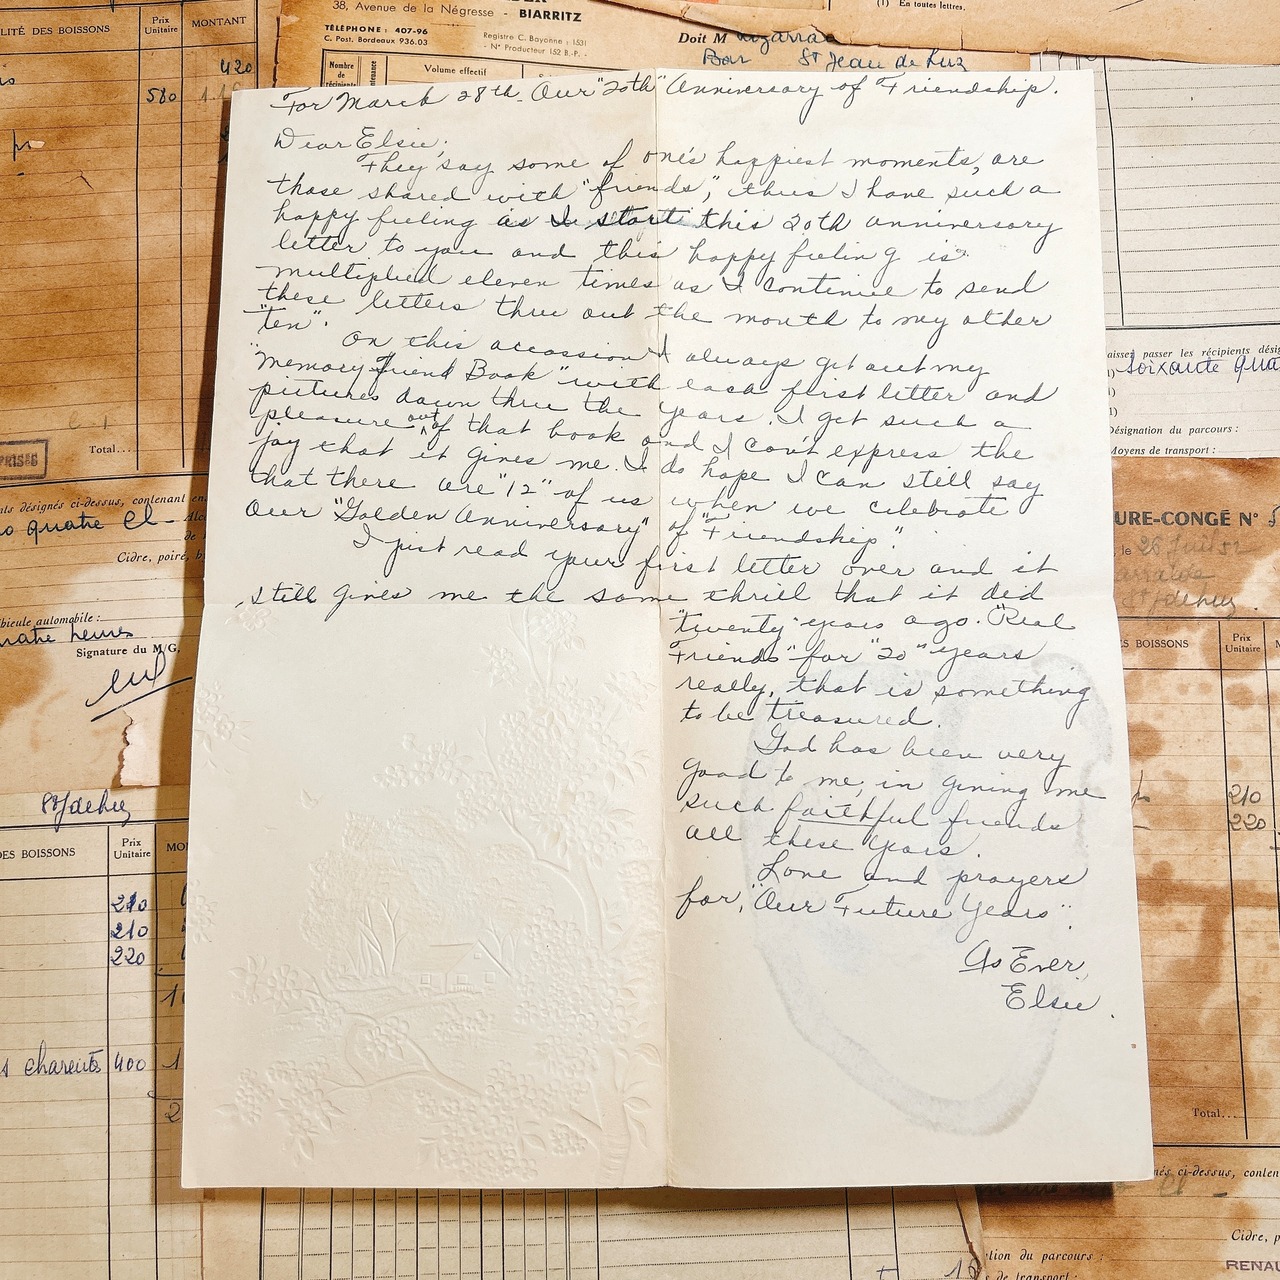 LITÉ DES BOISSONS
Prix Unitaire
MONTANT
420
580
Total...
38, Avenue de la Négresse - BIARRITZ
TÉLÉPHONE : 407-96
C. Post. Bordeaux 936.03
Registre C. Bayonne : 1531
- N° Producteur 152 B.P. -
Doit M
Bar St Jean de Luz
Nombre de récipients
Volume effectif
(1) En toutes lettres.
For March 28th. Our "20th" Anniversary of Friendship.
Dear Elsie,
They say some of one's happiest moments, are
those shared with "friends", thus I have such a
happy feeling as I start this 20th anniversary
letter to you and this happy feeling is
multiplied eleven times as I continue to send
these letters thru out the month to my other
"ten".
On this occassion I always get out my
"Memory Friend Book" with each first letter and
pictures down thru the years. I get such a
pleasure out of that book and I can't express the
joy that it gives me. I do hope I can still say
that there are "12" of us when we celebrate
Our "Golden Anniversary" of "Friendship".
I just read your first letter over and it
still gives me the same thrill that it did
twenty years ago. "Real
Friends" for "20" years
really, that is something
to be treasured.
God has been very
good to me, in giving me
such faithful friends
all these years.
Love and prayers
for, "Our Future Years".
As Ever,
Elsie.
aisser passer les récipients désig
soixante qua
Désignation du parcours :
Moyens de transport :
URE-CONGÉ N°
le 26 Juil 52
St Jdeluz
ES BOISSONS
Prix Unitaire
210
220
Total...
és ci-dessus, conten
Cidre, p
RENAU
tion du parcours :
s de transport :
PRISES
ls désignés ci-dessus, contenant en
quatre cl
Cidre, poiré, h
hicule automobile :
quatre heures
Signature du M/G,
St Jdeluz
DES BOISSONS
Prix Unitaire
MO
210
210
220
charents
400